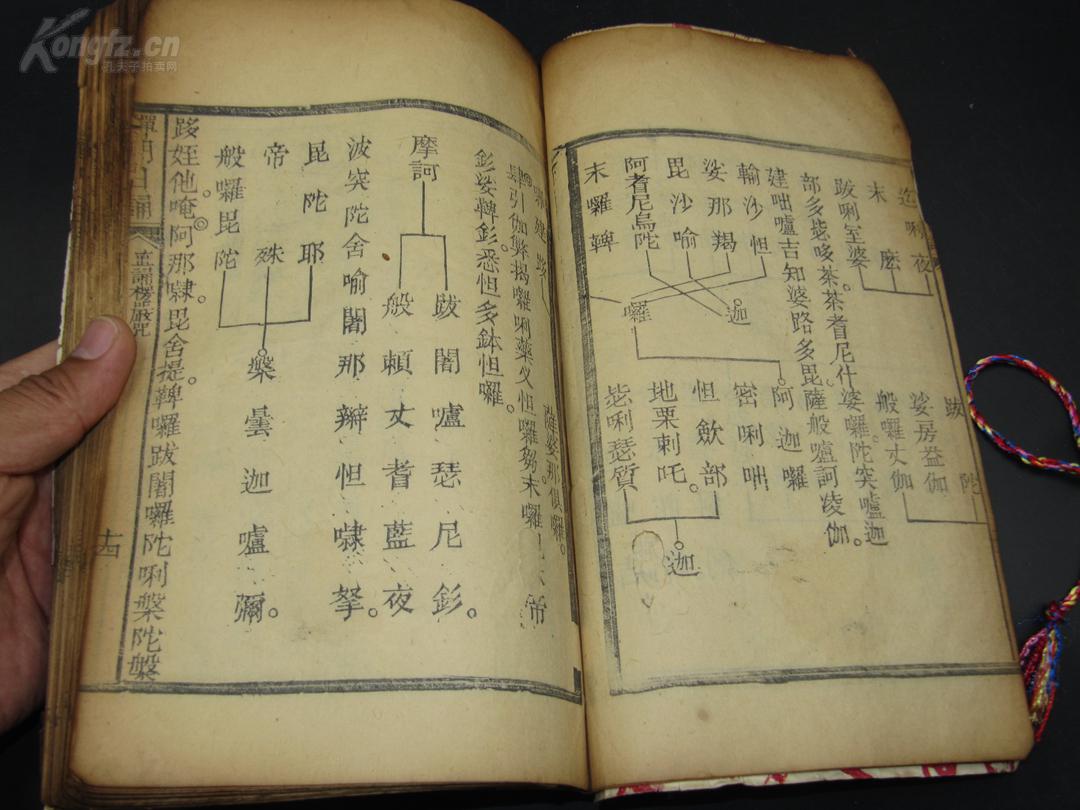 Kongfz.cn
孔夫子拍卖网
迦唎夜
末
麽
跋唎室婆
部多毖哆茶茶耆尼什
婆囉陀突嚧迦
建咄嚧吉知婆路多毘
薩般嚧訶凌伽。
輸沙怛
娑那羯
毘沙喻
阿耆尼烏陀
末囉鞞
迦。
囉
跋
陀
娑房娑伽
般囉丈伽
阿迦囉
密唎咄
怛斂部
地栗剌吒。
毖唎瑟質
迦。
肆引伽弊揭囉唎藥义怛囉芻。末囉
薩婆那俱囉。
帝
髟娑鞞髟。悉怛多鉢怛囉。
摩訶
跋闍嚧瑟尼髟。
般賴丈耆藍夜
波突陀舍喻闍那辮怛㘑拏。
毘陀耶
帝殊
般囉毘陀
槃曇迦嚧彌。
跢姪他唵。阿那㘑。毘舍提。鞞囉跋闍囉陀唎槃陀槃
禪門日誦
楞嚴咒
十四